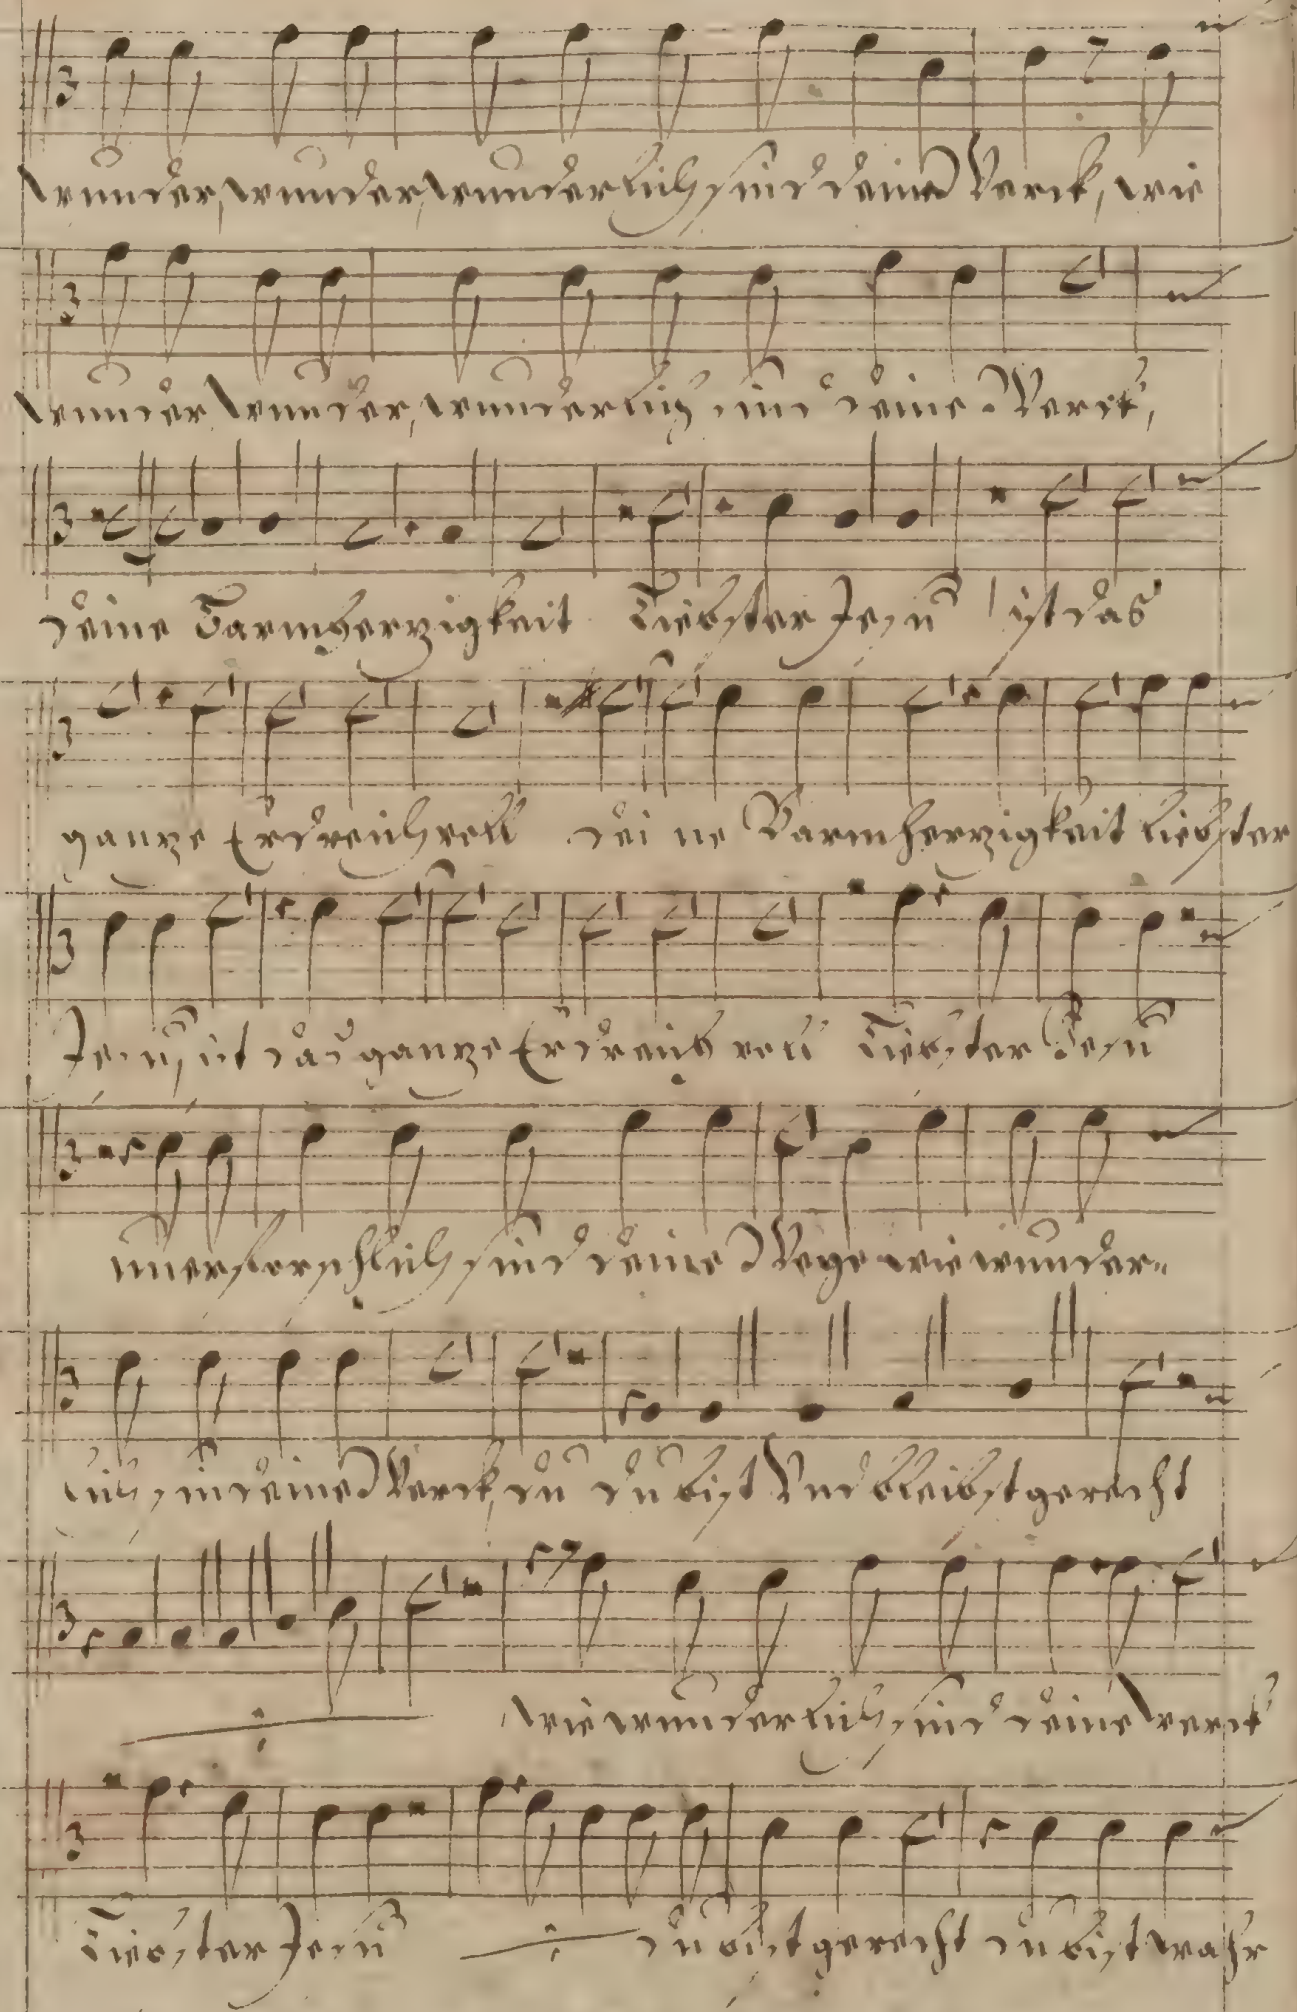 wunder, wunder, wunderlich sind deine Werck, wie
wunder wunder, wunderlich sind deine Werck,
deine Barmherzigkeit Liebster Jesu ist das
ganze Erdreich voll dei ne Barmherzigkeit liebster
Jesu, ist das ganze Erdreich voll Liebster Jesu
unerforschlich sind deine Wege wie wunder=
lich sind deine Werck, du du bist Und bleibst gerecht
wie wunderlich sind deine werck
Liebster Jesu du bist gerecht du bist wahr